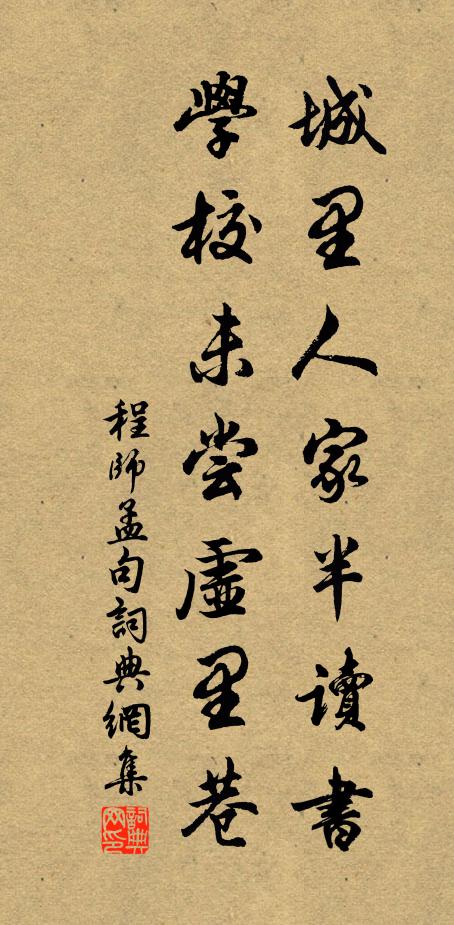 城里人家半讀書
學校未尝虛里巷
程師孟句詞典網集
詞典网印